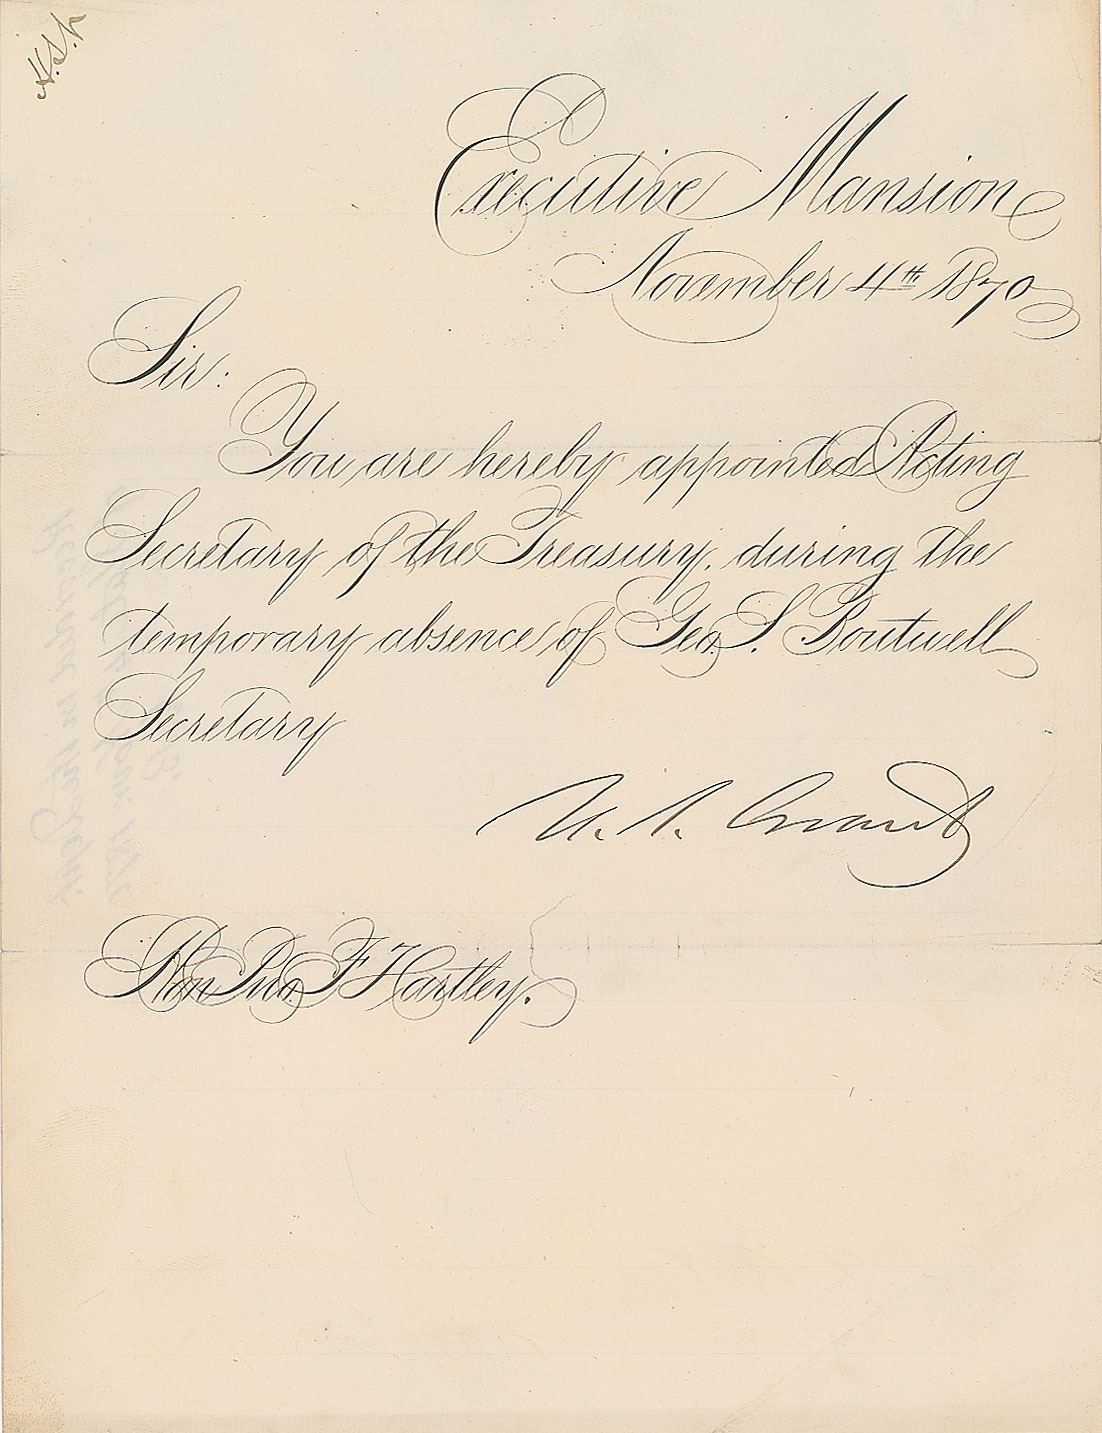 Executive Mansion
November 4th 1870
Sir:
You are hereby appointed Acting
Secretary of the Treasury, during the
temporary absence of Geo. S. Boutwell
Secretary
U. S. Grant
Hon Jno. F Hartley.